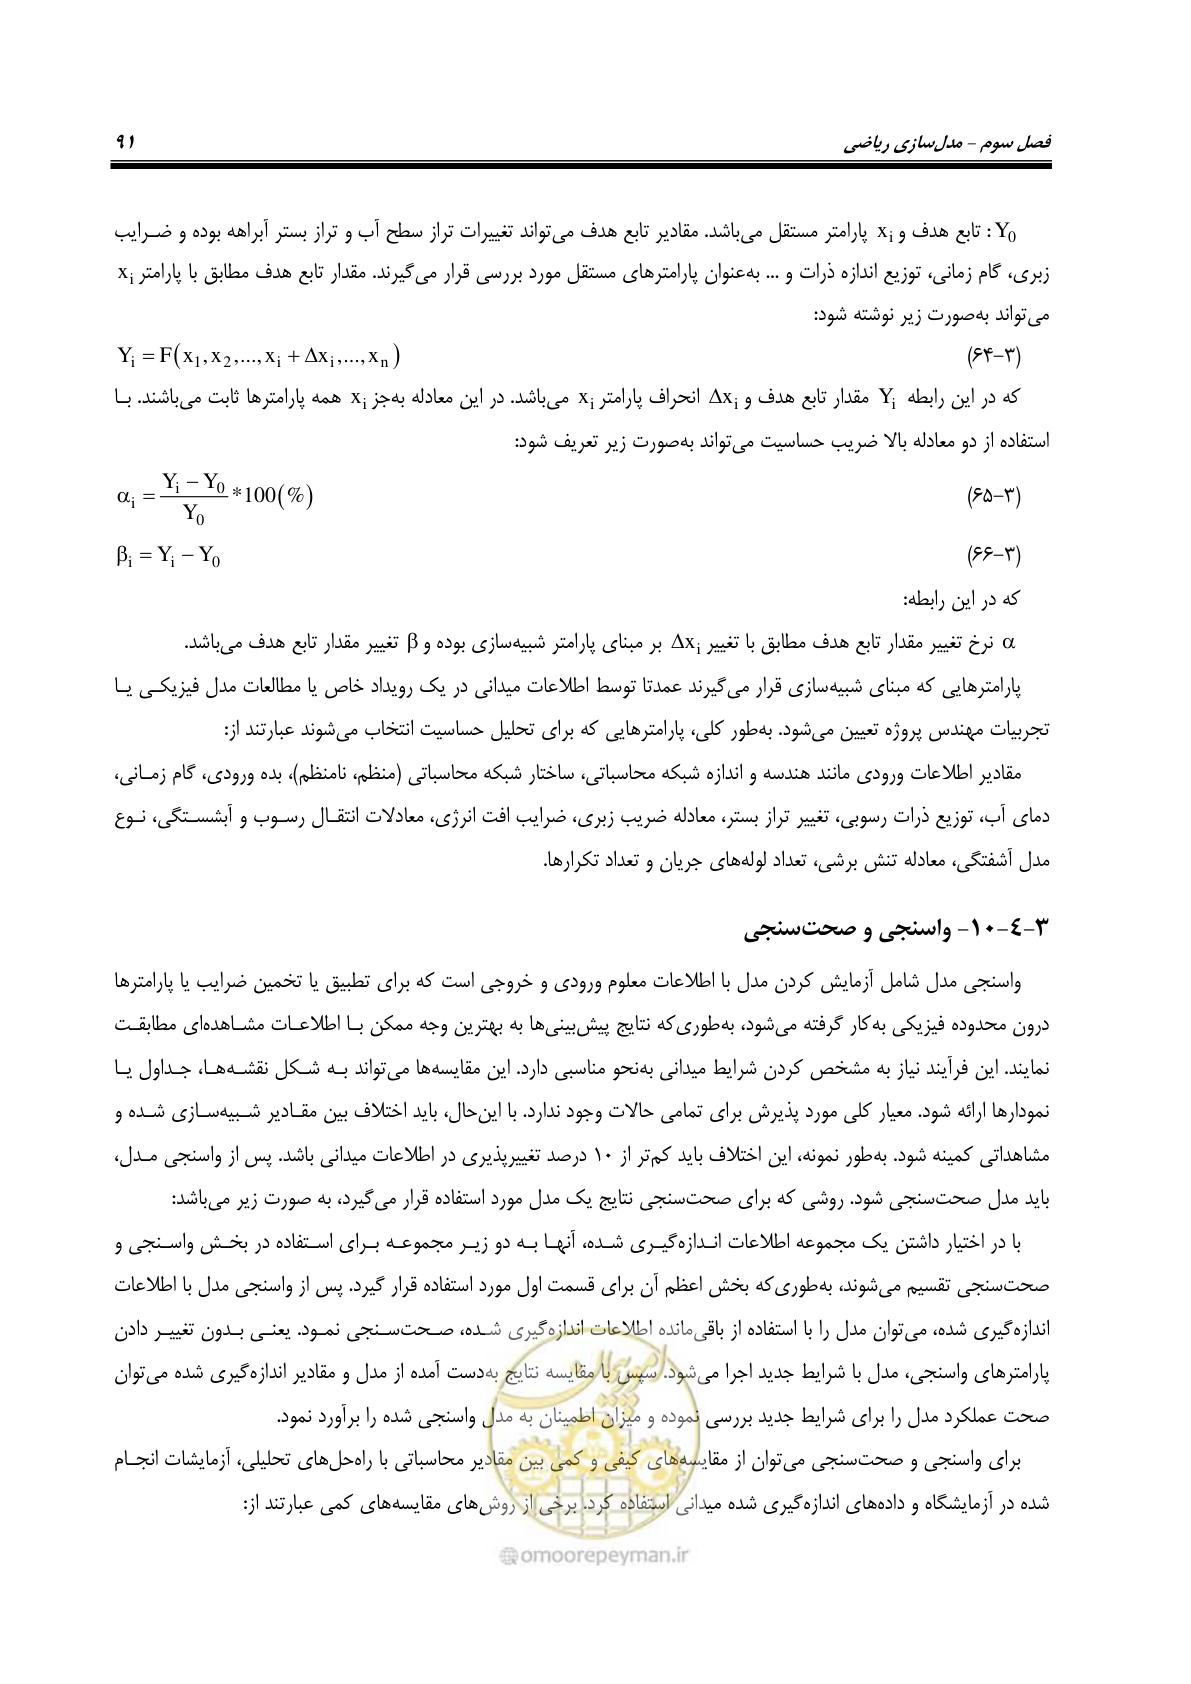 فصل سوم – مدل‌سازی ریاضی ۹۱
Y0 : تابع هدف و xi پارامتر مستقل می‌باشد. مقادیر تابع هدف می‌تواند تغییرات تراز سطح آب و تراز بستر آبراهه بوده و ضرایب
زبری، گام زمانی، توزیع اندازه ذرات و ... به‌عنوان پارامترهای مستقل مورد بررسی قرار می‌گیرند. مقدار تابع هدف مطابق با پارامتر xi
می‌تواند به‌صورت زیر نوشته شود:
Yi = F(x1, x2,..., xi + Δxi,..., xn) (۳-۶۴)
که در این رابطه Yi مقدار تابع هدف و Δxi انحراف پارامتر xi می‌باشد. در این معادله به‌جز xi همه پارامترها ثابت می‌باشند. با
استفاده از دو معادله بالا ضریب حساسیت می‌تواند به‌صورت زیر تعریف شود:
αi = (Yi − Y0)/Y0 *100(%) (۳-۶۵)
βi = Yi − Y0 (۳-۶۶)
که در این رابطه:
α نرخ تغییر مقدار تابع هدف مطابق با تغییر Δxi بر مبنای پارامتر شبیه‌سازی بوده و β تغییر مقدار تابع هدف می‌باشد.
پارامترهایی که مبنای شبیه‌سازی قرار می‌گیرند عمدتا توسط اطلاعات میدانی در یک رویداد خاص یا مطالعات مدل فیزیکی یا
تجربیات مهندس پروژه تعیین می‌شود. به‌طور کلی، پارامترهایی که برای تحلیل حساسیت انتخاب می‌شوند عبارتند از:
مقادیر اطلاعات ورودی مانند هندسه و اندازه شبکه محاسباتی، ساختار شبکه محاسباتی (منظم، نامنظم)، بده ورودی، گام زمانی،
دمای آب، توزیع ذرات رسوبی، تغییر تراز بستر، معادله ضریب زبری، ضرایب افت انرژی، معادلات انتقال رسوب و آبشستگی، نوع
مدل آشفتگی، معادله تنش برشی، تعداد لوله‌های جریان و تعداد تکرارها.
۳-۴-۱۰- واسنجی و صحت‌سنجی
واسنجی مدل شامل آزمایش کردن مدل با اطلاعات معلوم ورودی و خروجی است که برای تطبیق یا تخمین ضرایب یا پارامترها
درون محدوده فیزیکی به‌کار گرفته می‌شود، به‌طوری‌که نتایج پیش‌بینی‌ها به بهترین وجه ممکن با اطلاعات مشاهده‌ای مطابقت
نمایند. این فرآیند نیاز به مشخص کردن شرایط میدانی به‌نحو مناسبی دارد. این مقایسه‌ها می‌تواند به شکل نقشه‌ها، جداول یا
نمودارها ارائه شود. معیار کلی مورد پذیرش برای تمامی حالات وجود ندارد. با این‌حال، باید اختلاف بین مقادیر شبیه‌سازی شده و
مشاهداتی کمینه شود. به‌طور نمونه، این اختلاف باید کم‌تر از ۱۰ درصد تغییرپذیری در اطلاعات میدانی باشد. پس از واسنجی مدل،
باید مدل صحت‌سنجی شود. روشی که برای صحت‌سنجی نتایج یک مدل مورد استفاده قرار می‌گیرد، به صورت زیر می‌باشد:
با در اختیار داشتن یک مجموعه اطلاعات اندازه‌گیری شده، آنها به دو زیر مجموعه برای استفاده در بخش واسنجی و
صحت‌سنجی تقسیم می‌شوند، به‌طوری‌که بخش اعظم آن برای قسمت اول مورد استفاده قرار گیرد. پس از واسنجی مدل با اطلاعات
اندازه‌گیری شده، می‌توان مدل را با استفاده از باقی‌مانده اطلاعات اندازه‌گیری شده، صحت‌سنجی نمود. یعنی بدون تغییر دادن
پارامترهای واسنجی، مدل با شرایط جدید اجرا می‌شود. سپس با مقایسه نتایج به‌دست آمده از مدل و مقادیر اندازه‌گیری شده می‌توان
صحت عملکرد مدل را برای شرایط جدید بررسی نموده و میزان اطمینان به مدل واسنجی شده را برآورد نمود.
برای واسنجی و صحت‌سنجی می‌توان از مقایسه‌های کیفی و کمی بین مقادیر محاسباتی با راه‌حل‌های تحلیلی، آزمایشات انجام
شده در آزمایشگاه و داده‌های اندازه‌گیری شده میدانی استفاده کرد. برخی از روش‌های مقایسه‌های کمی عبارتند از:
omoorepeyman.ir